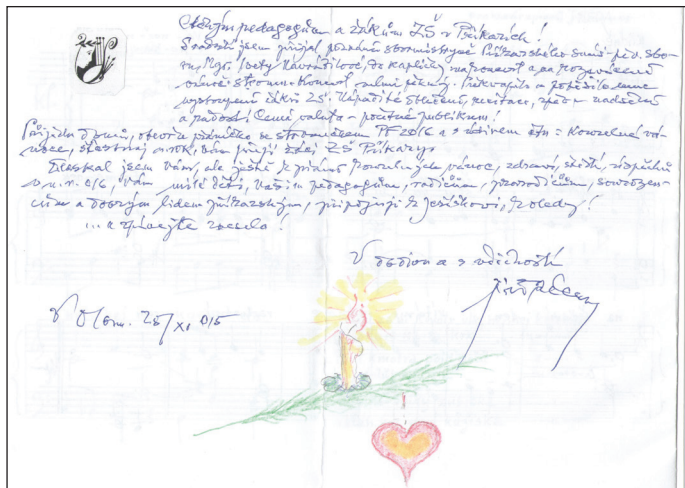 Ctěným pedagogům a žákům ZŠ v Příkazích!
S radostí jsem přijal pozvání sbormistryně Příkazského smíš. pěv. sbo-
ru, Mgr. Ivety Navrátilové, do kapličky na koncert a na rozsvěcení
stromu. Koncert velmi pěkný. Překvapilo a potěšilo mne
vystoupení žáků ZŠ. Nápadité oblečení, recitace, zpěv - nadšení
a radost! Cenná valuta - početné publikum!
Přijdu domů, otevřu přáníčko se stromečkem PF 2016 a s úžasem čtu: Kouzelné vá-
noce, šťastný n. rok, Vám přejí žáci ZŠ Příkazy.
Nestkal jsem Vám, ale ještě k přání kouzelných vánoc, zdraví, štěstí, úspěchů
v n. r. 016, Vám milé děti, Vašim pedagogům, rodičům, prarodičům, sourozen-
cům a dobrým lidem příkazským, připojuji k Ježíškovi, koledy!
... a zpívejte vesele!
V úctě a s vděčností
V Olom. 28/XI 015